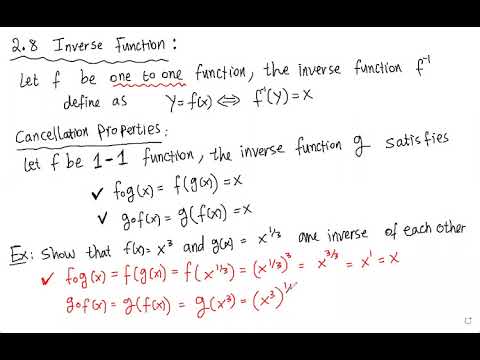 2.8 Inverse Function:
Let f be one to one function, the inverse function f⁻¹
define as y=f(x) ⇔ f⁻¹(y)=x
Cancellation Properties:
Let f be 1-1 function, the inverse function g satisfies
✓ fog(x) = f(g(x)) = x
✓ gof(x) = g(f(x)) = x
Ex: Show that f(x)= x³ and g(x) = x^{1/3} are inverse of each other
✓ fog(x) = f(g(x)) = f(x^{1/3}) = (x^{1/3})³ = x^{3/3} = x¹ = x
gof(x) = g(f(x)) = g(x³) = (x³)^{1/